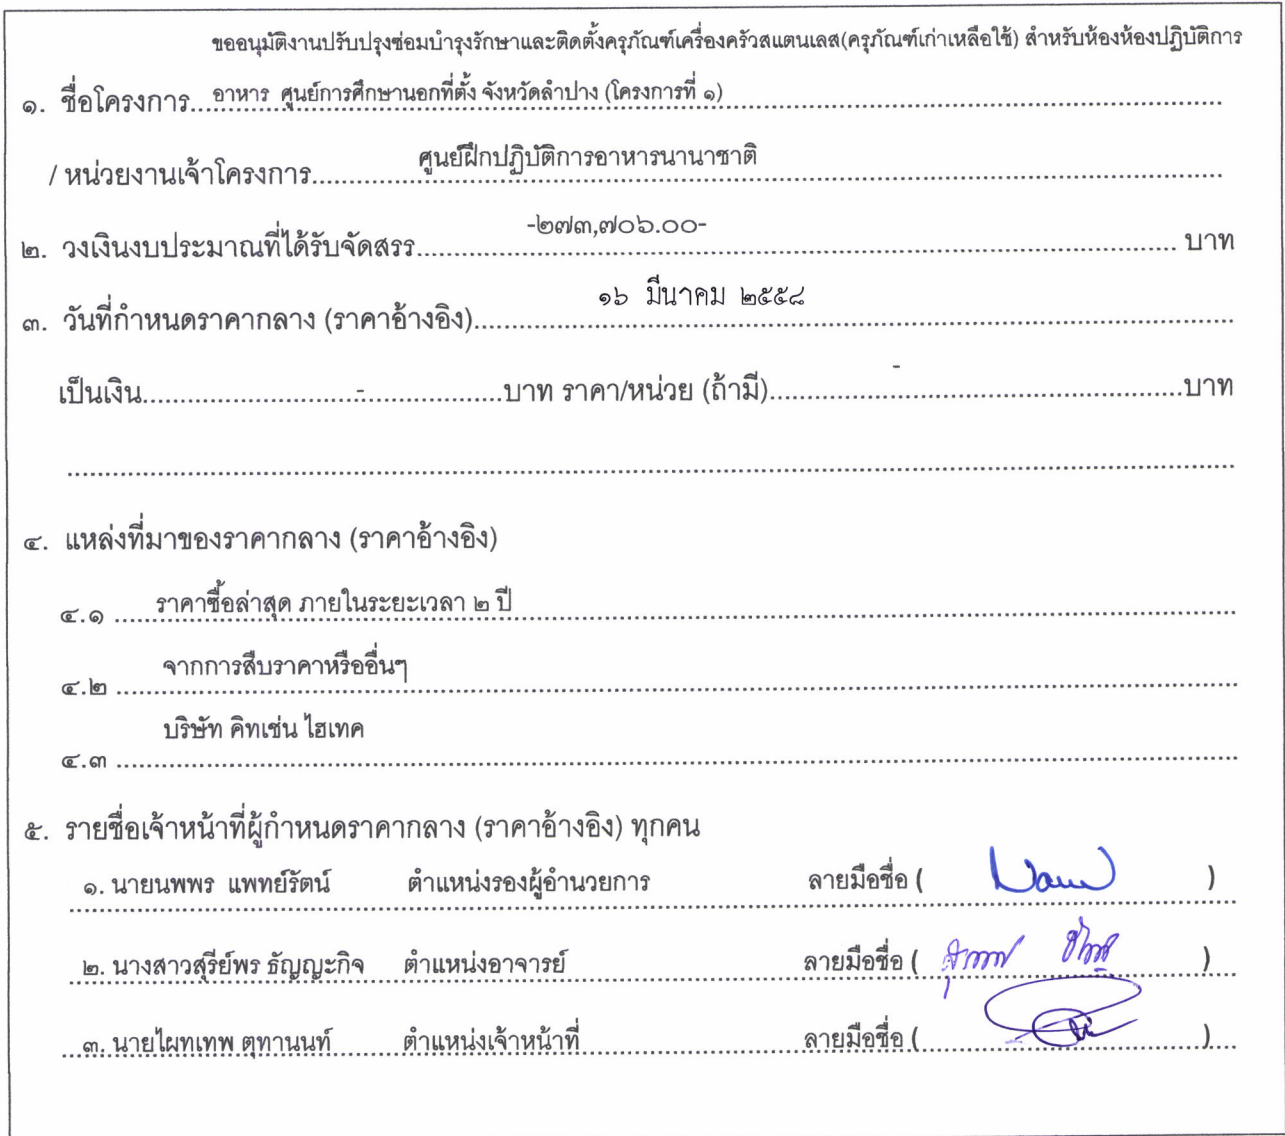 ขออนุมัติงานปรับปรุงซ่อมบำรุงรักษาและติดตั้งครุภัณฑ์เครื่องครัวสแตนเลส(ครุภัณฑ์เก่าเหลือใช้) สำหรับห้องห้องปฏิบัติการ
๑. ชื่อโครงการ...อาหาร ศูนย์การศึกษานอกที่ตั้ง จังหวัดลำปาง (โครงการที่ ๑)
/ หน่วยงานเจ้าโครงการ...ศูนย์ฝึกปฏิบัติการอาหารนานาชาติ
๒. วงเงินงบประมาณที่ได้รับจัดสรร...-๒๗๓,๗๐๖.๐๐-...บาท
๓. วันที่กำหนดราคากลาง (ราคาอ้างอิง)...๑๖ มีนาคม ๒๕๕๘
เป็นเงิน...-...บาท ราคา/หน่วย (ถ้ามี)...-...บาท
๔. แหล่งที่มาของราคากลาง (ราคาอ้างอิง)
๔.๑ ราคาซื้อล่าสุด ภายในระยะเวลา ๒ ปี
๔.๒ จากการสืบราคาหรืออื่นๆ
๔.๓ บริษัท คิทเช่น ไฮเทค
๕. รายชื่อเจ้าหน้าที่ผู้กำหนดราคากลาง (ราคาอ้างอิง) ทุกคน
๑. นายนพพร แพทย์รัตน์ ตำแหน่งรองผู้อำนวยการ ลายมือชื่อ ( )
๒. นางสาวสุรีย์พร ธัญญะกิจ ตำแหน่งอาจารย์ ลายมือชื่อ ( )
๓. นายไผทเทพ ตุทานนท์ ตำแหน่งเจ้าหน้าที่ ลายมือชื่อ ( )